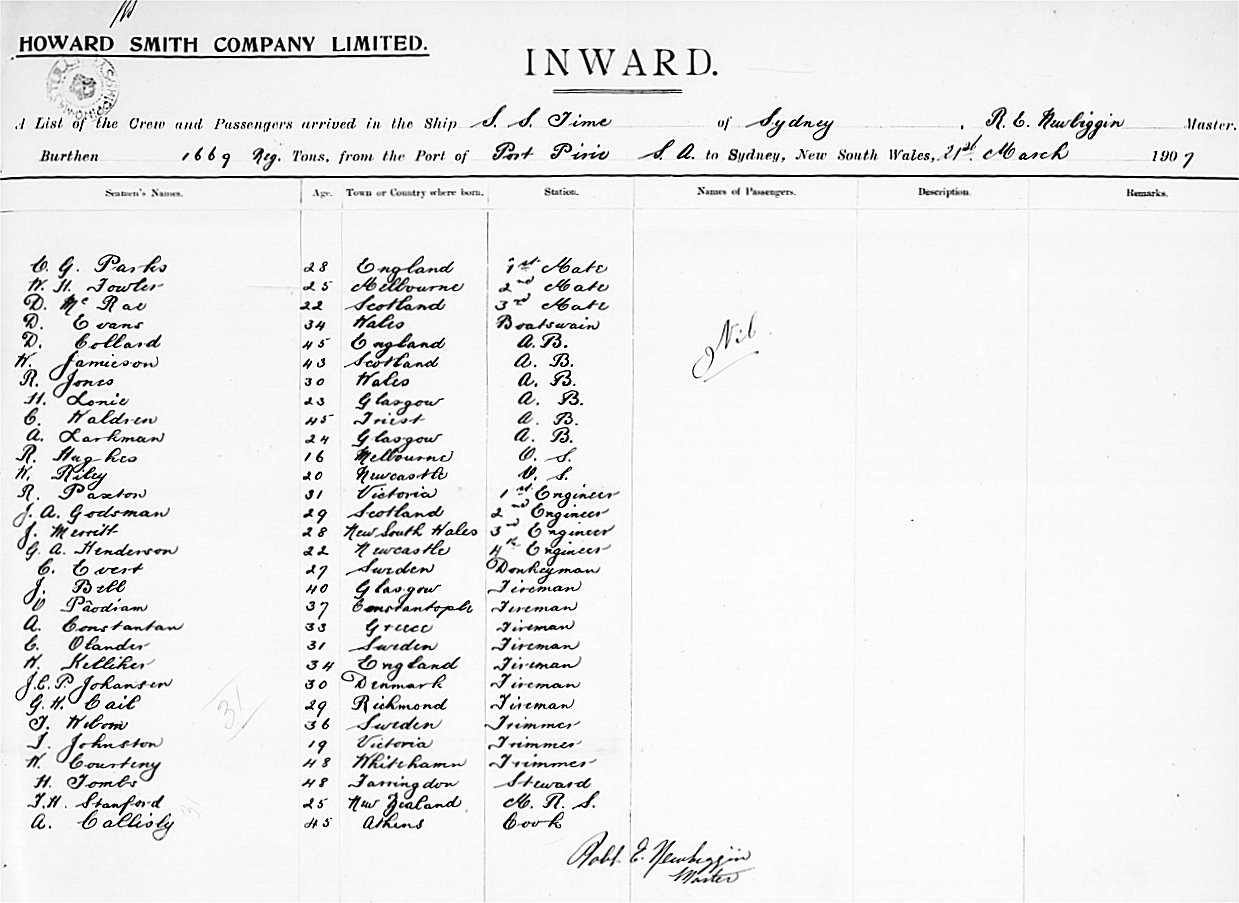 HOWARD SMITH COMPANY LIMITED.
INWARD.
A List of the Crew and Passengers arrived in the Ship S. S. Time of Sydney, R. E. Newbiggin Master.
Burthen 1669 Reg. Tons, from the Port of Port Pirie S. A. to Sydney, New South Wales, 21st March 1907
Seamen's Names. Age. Town or Country where born. Station. Names of Passengers. Description. Remarks.
C. G. Parks 28 England 1st Mate
W. H. Fowler 25 Melbourne 2nd Mate
D. Mc Rae 22 Scotland 3rd Mate
D. Evans 34 Wales Boatswain
Nil
D. Collard 45 England A. B.
W. Jamieson 43 Scotland A. B.
R. Jones 30 Wales A. B.
H. Lonie 23 Glasgow A. B.
C. Waldren 45 Triest A. B.
A. Larkman 24 Glasgow A. B.
R. Hughes 16 Melbourne O. S.
W. Riley 20 Newcastle O. S.
R. Paxton 31 Victoria 1st Engineer
J. A. Godsman 29 Scotland 2nd Engineer
J. Merritt 28 New South Wales 3rd Engineer
G. A. Henderson 22 Newcastle 4th Engineer
C. Evert 27 Sweden Donkeyman
J. Bell 40 Glasgow Fireman
37 Constantople Fireman
A. Constantan 33 Greece Fireman
C. Olander 31 Sweden Fireman
W. Kelliher 34 England Fireman
J. C. P. Johansen 30 Denmark Fireman
G. H. Cail 29 Richmond Fireman
31
36 Sweden Trimmer
J. Johnston 19 Victoria Trimmer
W. Courteny 48 Whitehamn Trimmer
H. Tombs 48 Farringdon Steward
F. H. Stanford 25 New Zealand M. R. S.
31
A. Callisly 45 Athens Cook
Robt. E. Newbiggin
Master